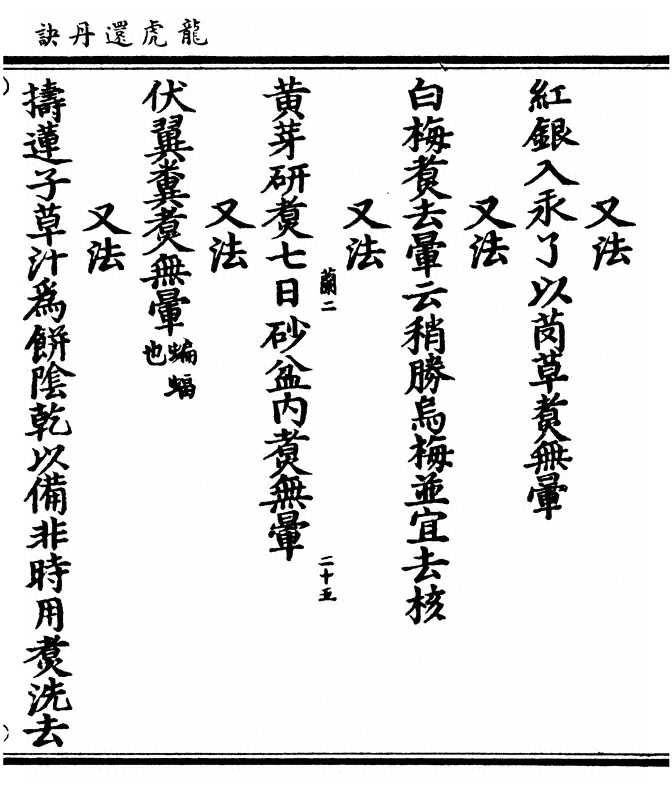 龍虎還丹訣
又法
紅銀入汞了以茵草煑無暈
又法
白梅煑去暈云稍勝烏梅並宜去核
又法
蘭二
二十五
黄芽研煑七日砂盆内煑無暈
又法
伏翼糞煑無暈蝙蝠也
又法
擣蓮子草汁爲餅陰乾以備非時用煑洗去